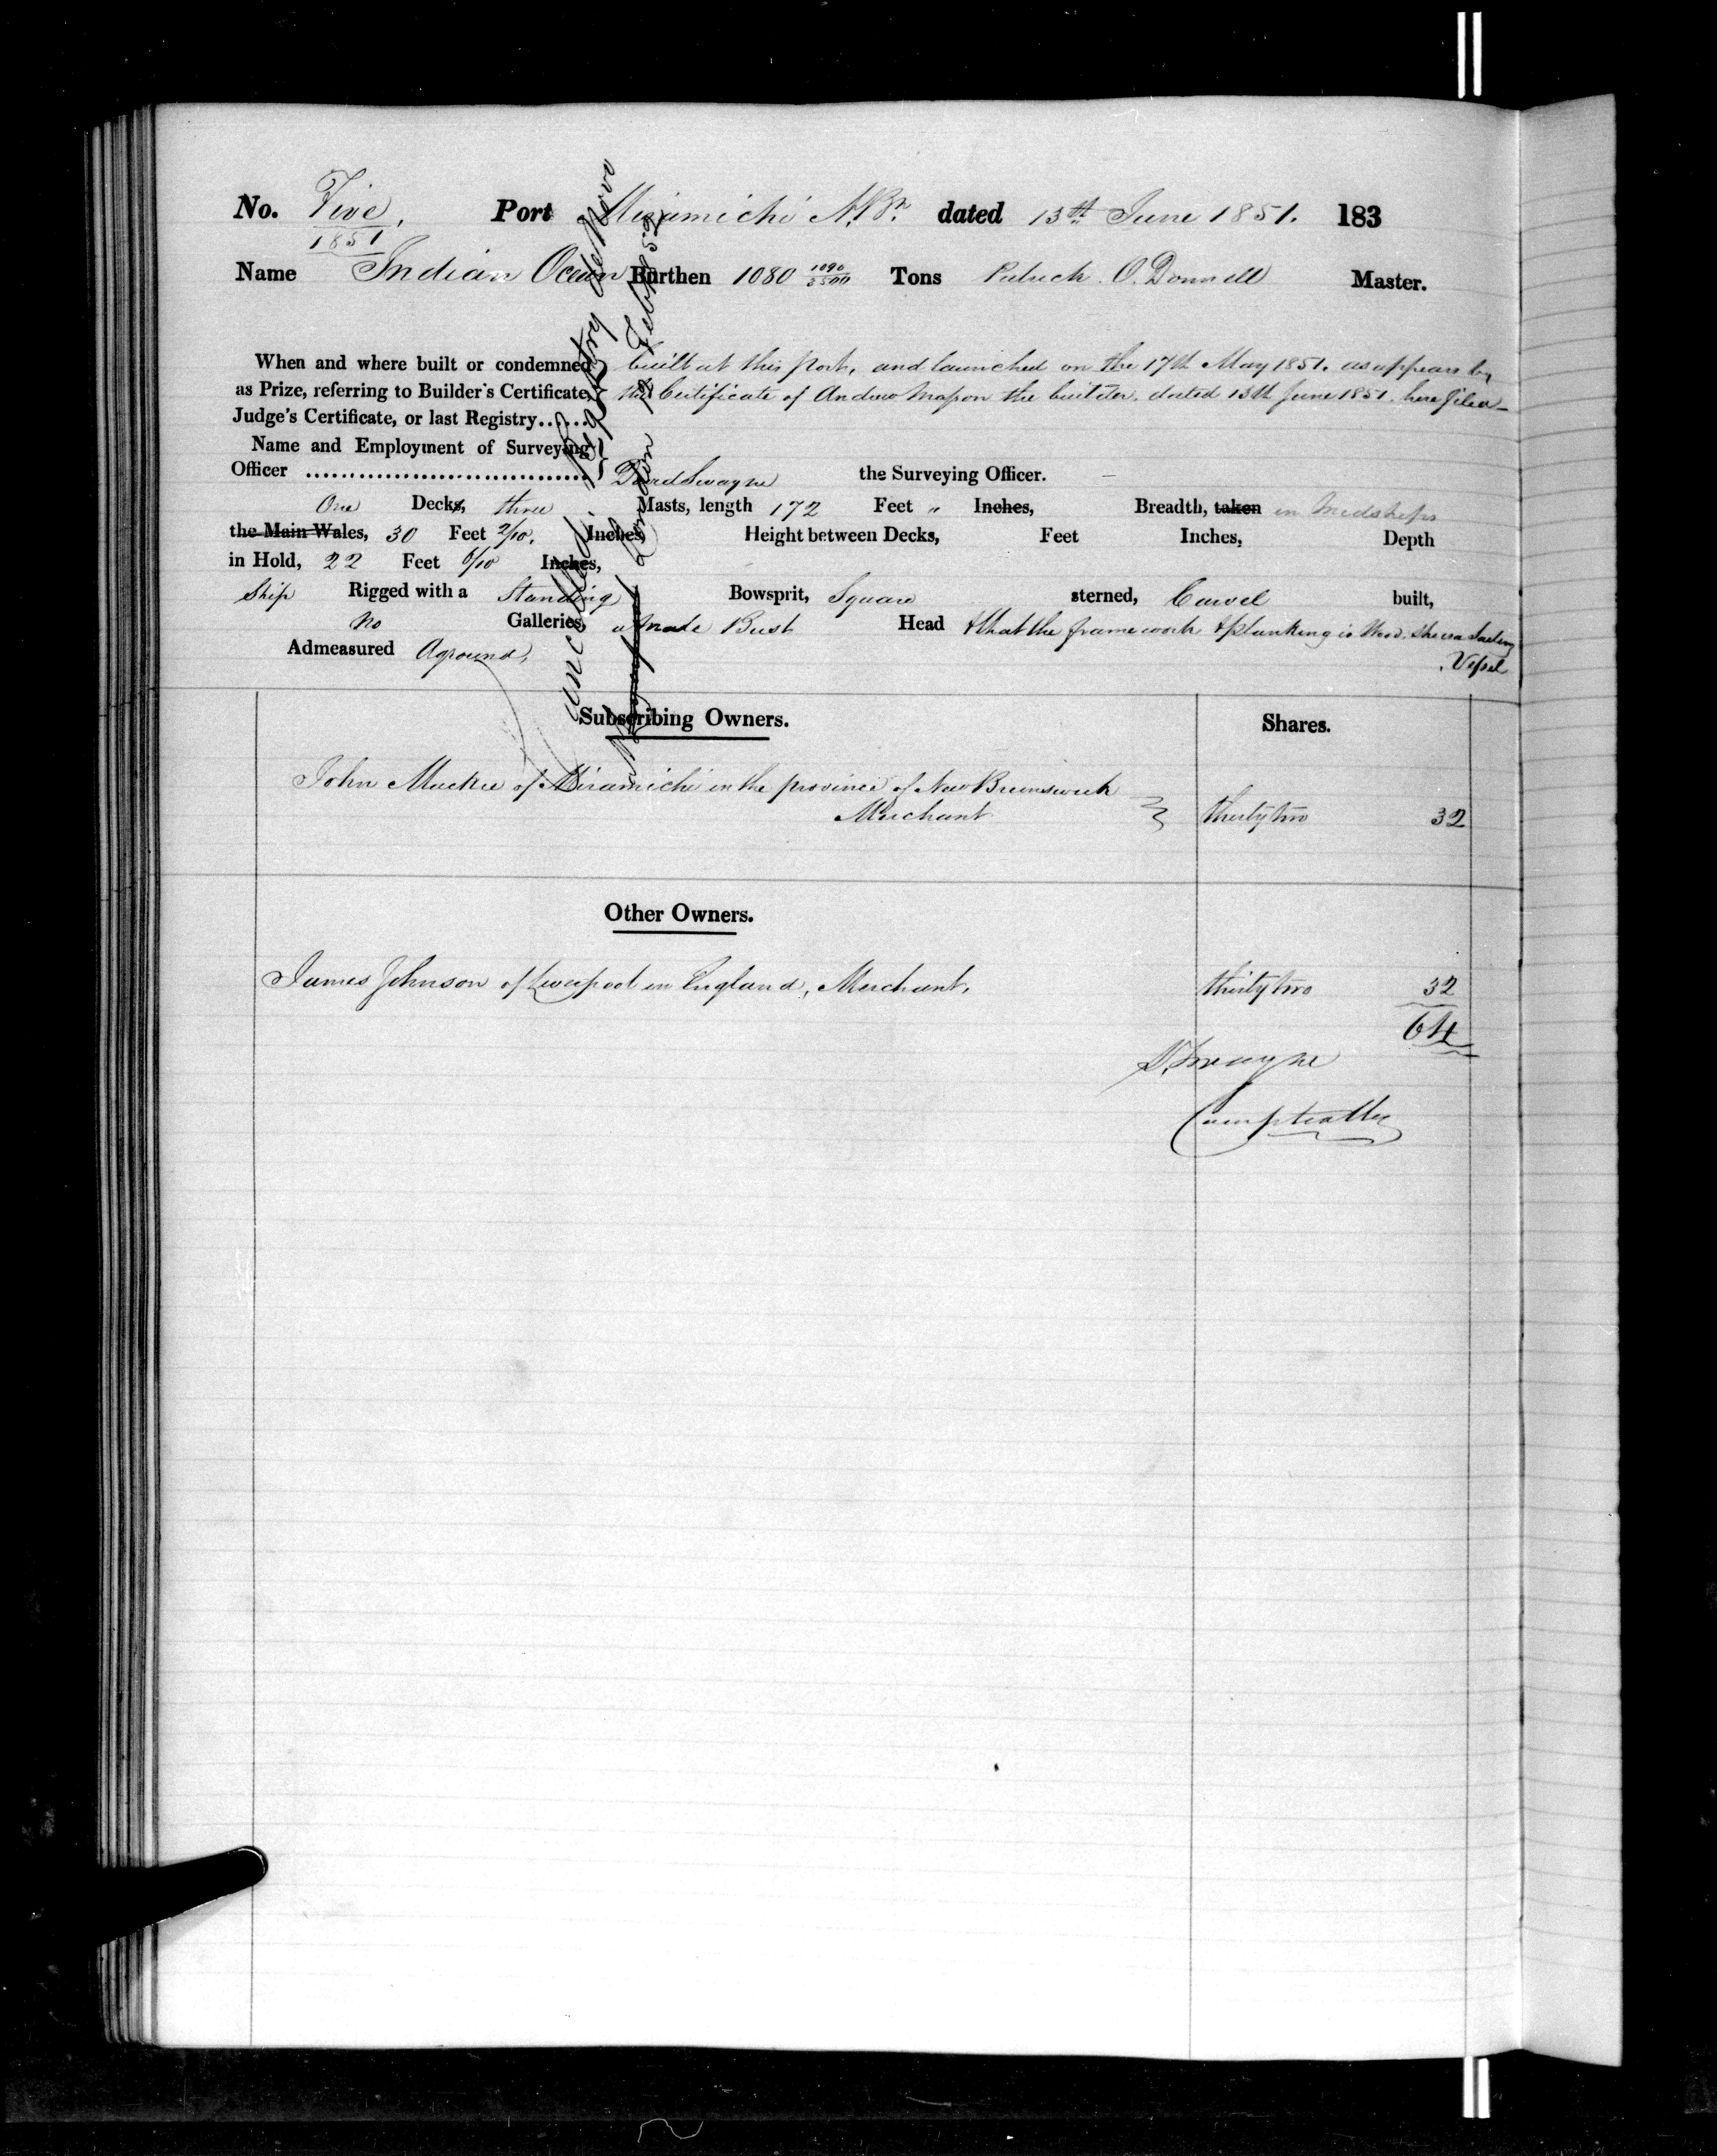 No. Five, Port Miramichi N.Bk. dated 13th June 1851. 183
1851
Name Indian Ocean Burthen 1080 1090/3500 Tons Patrick O.Donnell Master.
When and where built or condemned
as Prize, referring to Builder's Certificate,
Judge's Certificate, or last Registry......
built at this port, and launched on the 17th May 1851. as appears by
the Certificate of Andrew Mason the builder, dated 13th June 1851. here filed
Name and Employment of Surveying
Officer ................................ David Swayne the Surveying Officer.
One Decks, three Masts, length 172 Feet " Inches, Breadth, taken in Midships
the Main Wales, 30 Feet 2/10. Inches, Height between Decks, Feet Inches, Depth
in Hold, 22 Feet 6/10 Inches,
Ship Rigged with a Standing Bowsprit, Square sterned, Carvel built,
No Galleries, a Male Bust Head & that the framework & planking is Wood. She is a Sailing
Vessel
Admeasured Aground,
Cancelled. Registry de Novo
London 12 Feby 52
Subscribing Owners.
Shares.
John Mackie of Miramichi in the province of New Brunswick
Merchant
thirty two 32
Other Owners.
James Johnson of Liverpool in England, Merchant,
thirty two 32
64
D. Swayne
Comptroller